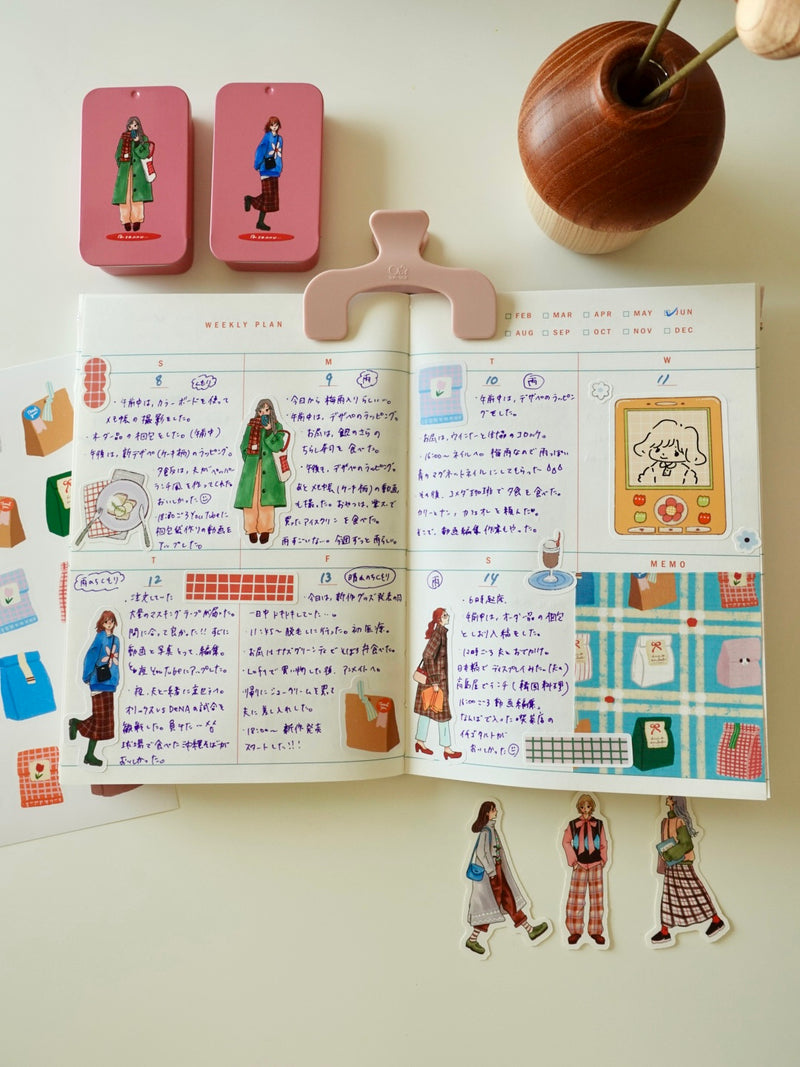 WEEKLY PLAN
FEB MAR APR MAY JUN
AUG SEP OCT NOV DEC
S
8 くもり
・午前中は、カラーボードを使って
メモ帳の撮影をした。
・オーダー品の梱包をした(午前中)
午後は、新デザペ(ケーキ柄)のラッピング。
夕飯は、夫がペッパー
ランチ風を作ってくれた
おいしかった
YouTubeに
梱包紙作りの動画を
アップした。
M
9 雨
・今日から梅雨入りらしい…。
・午前中は、デザペのラッピング。
お昼は、銀のさらの
ちらし寿司を食べた。
・午後も、デザペのラッピング。
あとメモ帳(ケーキ柄)の動画
も撮った。おやつは、
買ったアイスクリンを食べた。
雨すごいな…。今週ずっと雨らしい。
T
10 雨
・午前中は、デザペのラッピン
グをした。
・お昼は、ウインナーと
・16:00〜ネイルへ。梅雨なので雨っぽい
青のマグネットネイルにしてもらった
その後、コメダ珈琲で夕食を食べた。
カツサンド、カフェオレを頼んだ。
そこで、動画編集作業もやった。
W
11
T
12 雨のちくもり
・注文してた
大量のマスキングテープが届いた。
間に合って良かった!! 私に
動画と写真とって、編集。
YouTubeにアップした。
・夜、夫と一緒に京セラへ。
オリックスvs DeNAの試合を
観戦した。負けた…
球場で食べた沖縄そばが
おいしかった。
F
13 晴れのちくもり
・今日は、新作グッズ発表の日
一日中ドキドキしてた…。
・11:45〜 脱毛に行った。初医療。
・お昼はナナズグリーンティでとばを食べた。
・Loftで買い物した後、アニメイトへ。
帰りにシュークリームを買って
夫に差し入れした。
・18:00〜 新作発表
スタートした!!
S
14 雨
・6時起床。
午前中は、オーダー品の梱包
としおり入稿をした。
・12時ごろ夫とおでかけ。
日本橋でディスプレイみた。(夫の)
高島屋でランチ(韓国料理)
16:00ごろ動画編集。
なんばで入った喫茶店の
イチゴタルトが
おいしかった
MEMO